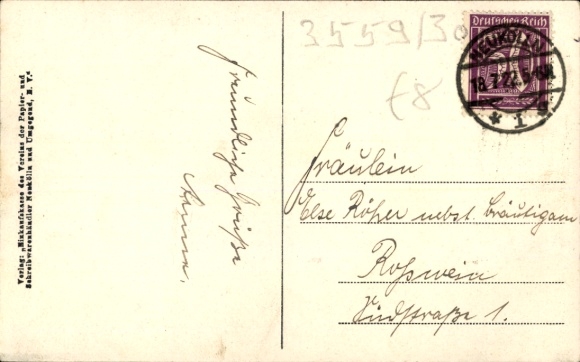 Verlag: „Einkaufskasse des Vereins der Papier- und
Schreibwarenhändler Neukölln und Umgegend, E. V.“
freundliche Grüße
3559/30
£8
Deutsches Reich
NEUKÖLLN
18.7.22.5-6N
* 1 *
Fräulein
Else Röher nebst Bräutigam
Roßwein
Südstraße 1.